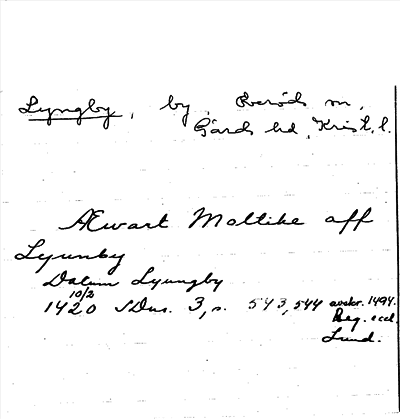 Lyngby, by, Everöds sn,
Gärds hd, Krist. l.
Æwart Moltike aff
Lyunby
Datum Lyungby
10/2
1420 SDns. 3, s. 543, 544 avskr. 1494.
Reg. eccl.
Lund.